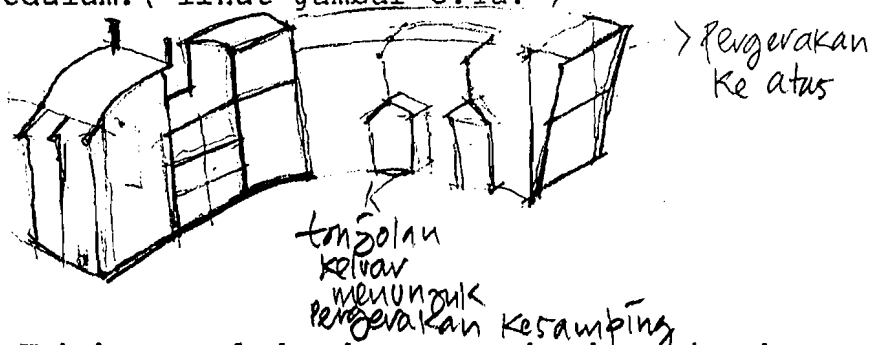 ( lihat gambar
> Pergerakan
Ke atas
tonjolan
keluar
menunjuk
Pergerakan Kesamping